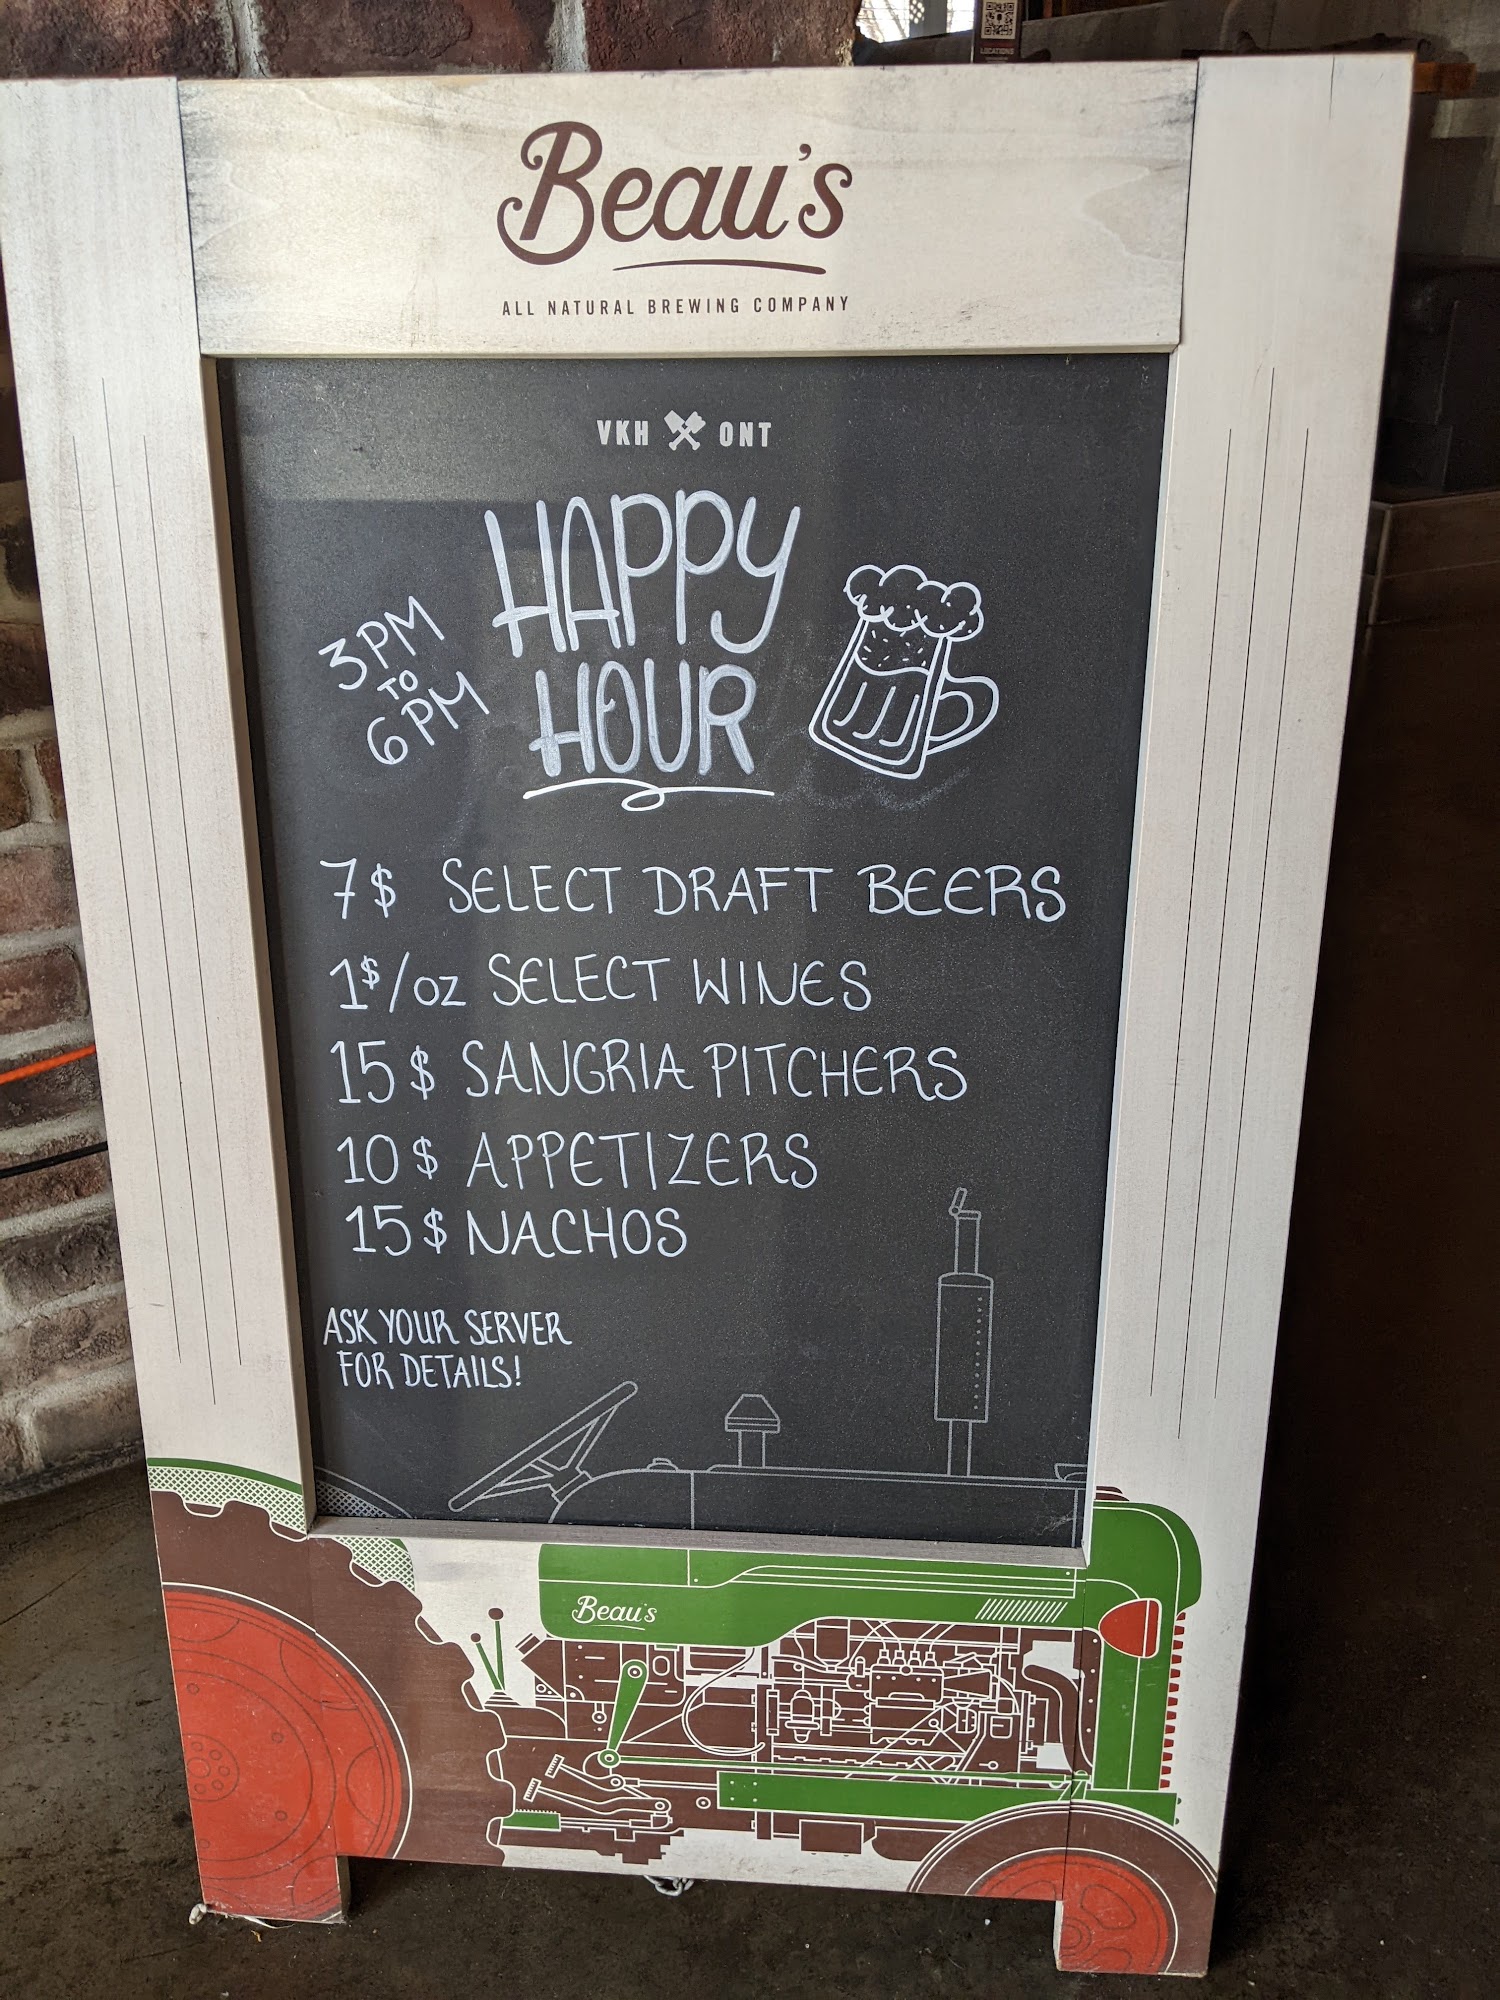 LOCATIONS
Beau's
ALL NATURAL BREWING COMPANY
VKH ONT
HAPPY
HOUR
3PM
TO
6PM
7$ SELECT DRAFT BEERS
1$/oz SELECT WINES
15$ SANGRIA PITCHERS
10$ APPETIZERS
15$ NACHOS
ASK YOUR SERVER
FOR DETAILS!
Beau's